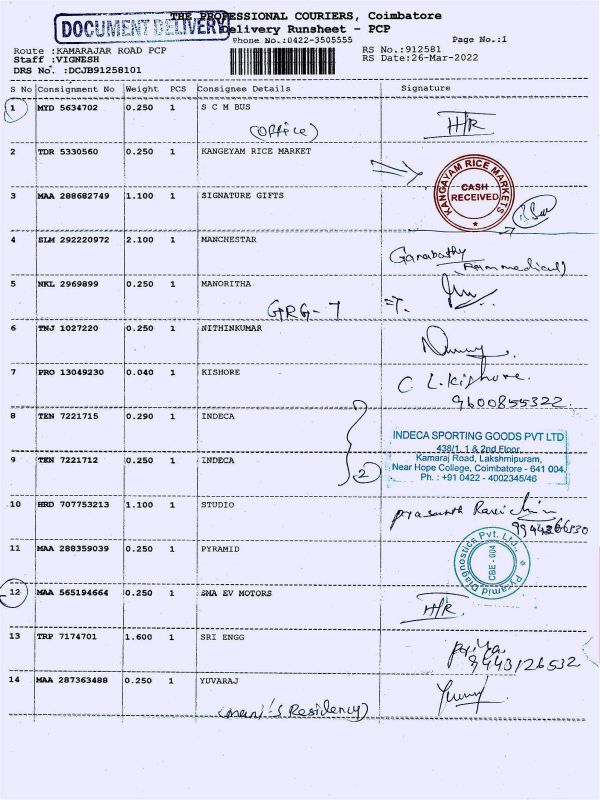 DOCUMENT DELIVERY
THE PROFESSIONAL COURIERS, Coimbatore
Delivery Runsheet - PCP
Phone No.:0422-3505555
Page No.:1
Route :KAMARAJAR ROAD PCP
RS No.:912581
Staff :VIGNESH
RS Date:26-Mar-2022
DRS No. :DCJB91258101
S No Consignment No Weight PCS Consignee Details Signature
1 MYD 5634702 0.250 1 S C M BUS
(Office) H/R
2 TDR 5330560 0.250 1 KANGEYAM RICE MARKET
KANGAYAM RICE MARKETS
CASH
RECEIVED
3 MAA 288682749 1.100 1 SIGNATURE GIFTS
4 SLM 292220972 2.100 1 MANCHESTAR
Ganabathy
5 NKL 2969899 0.250 1 MANORITHA
GRG - 7
6 TNJ 1027220 0.250 1 NITHINKUMAR
7 PRO 13049230 0.040 1 KISHORE
C L.Kishore.
9600855322.
8 TEN 7221715 0.290 1 INDECA
9 TEN 7221712 0.250 1 INDECA
2
INDECA SPORTING GOODS PVT LTD
438/1, 1 & 2nd Floor,
Kamaraj Road, Lakshmipuram,
Near Hope College, Coimbatore - 641 004.
Ph. : +91 0422 - 4002345/46
10 HRD 707753213 1.100 1 STUDIO
prasanth
11 MAA 288359039 0.250 1 PYRAMID
Pyramid Diagnostics Pvt. Ltd.
CBE - 004
12 MAA 565194664 0.250 1 SMA EV MOTORS
H/R
13 TRP 7174701 1.600 1 SRI ENGG
Priya
9443126532
14 MAA 287363488 0.250 1 YUVARAJ
(mani's Residency)